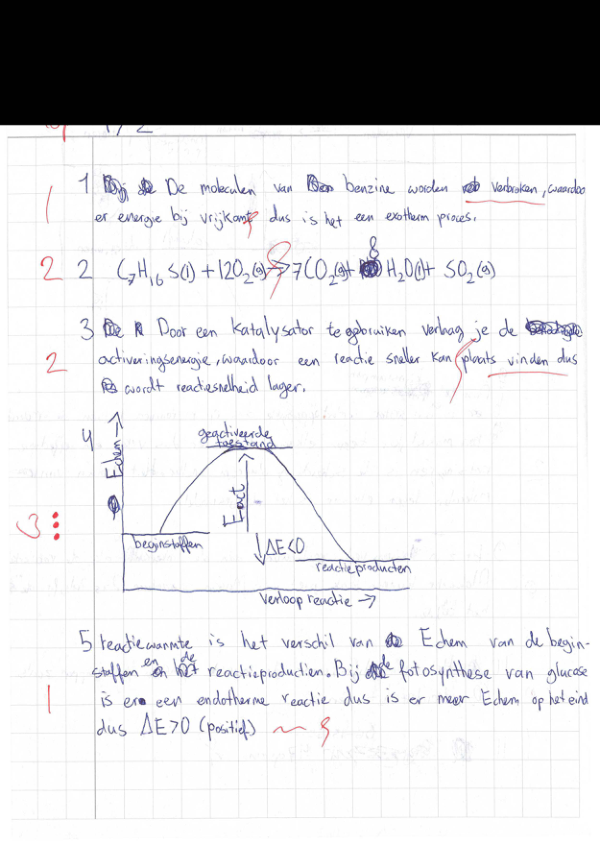 1 De moleculen van benzine worden verbroken, waardoo
er energie bij vrijkomt dus is het een exotherm proces.
1
2 2 C7H16S(l) + 12O2(g) → 7CO2(g) + 8 H2O(l) + SO2(g)
3 Door een katalysator te gebruiken verlaag je de
activeringsenergie, waardoor een reactie sneller kan plaats vinden dus
2
wordt reactiesnelheid lager.
4
Echem →
geactiveerde
toestand
Eact
3
beginstoffen
ΔE<0
reactieproducten
verloop reactie →
5 reactiewarmte is het verschil van Echem van de begin-
stoffen en de reactieproducten. Bij de fotosynthese van glucose
is er een endotherme reactie dus is er meer Echem op het eind
1
dus ΔE>0 (positief)